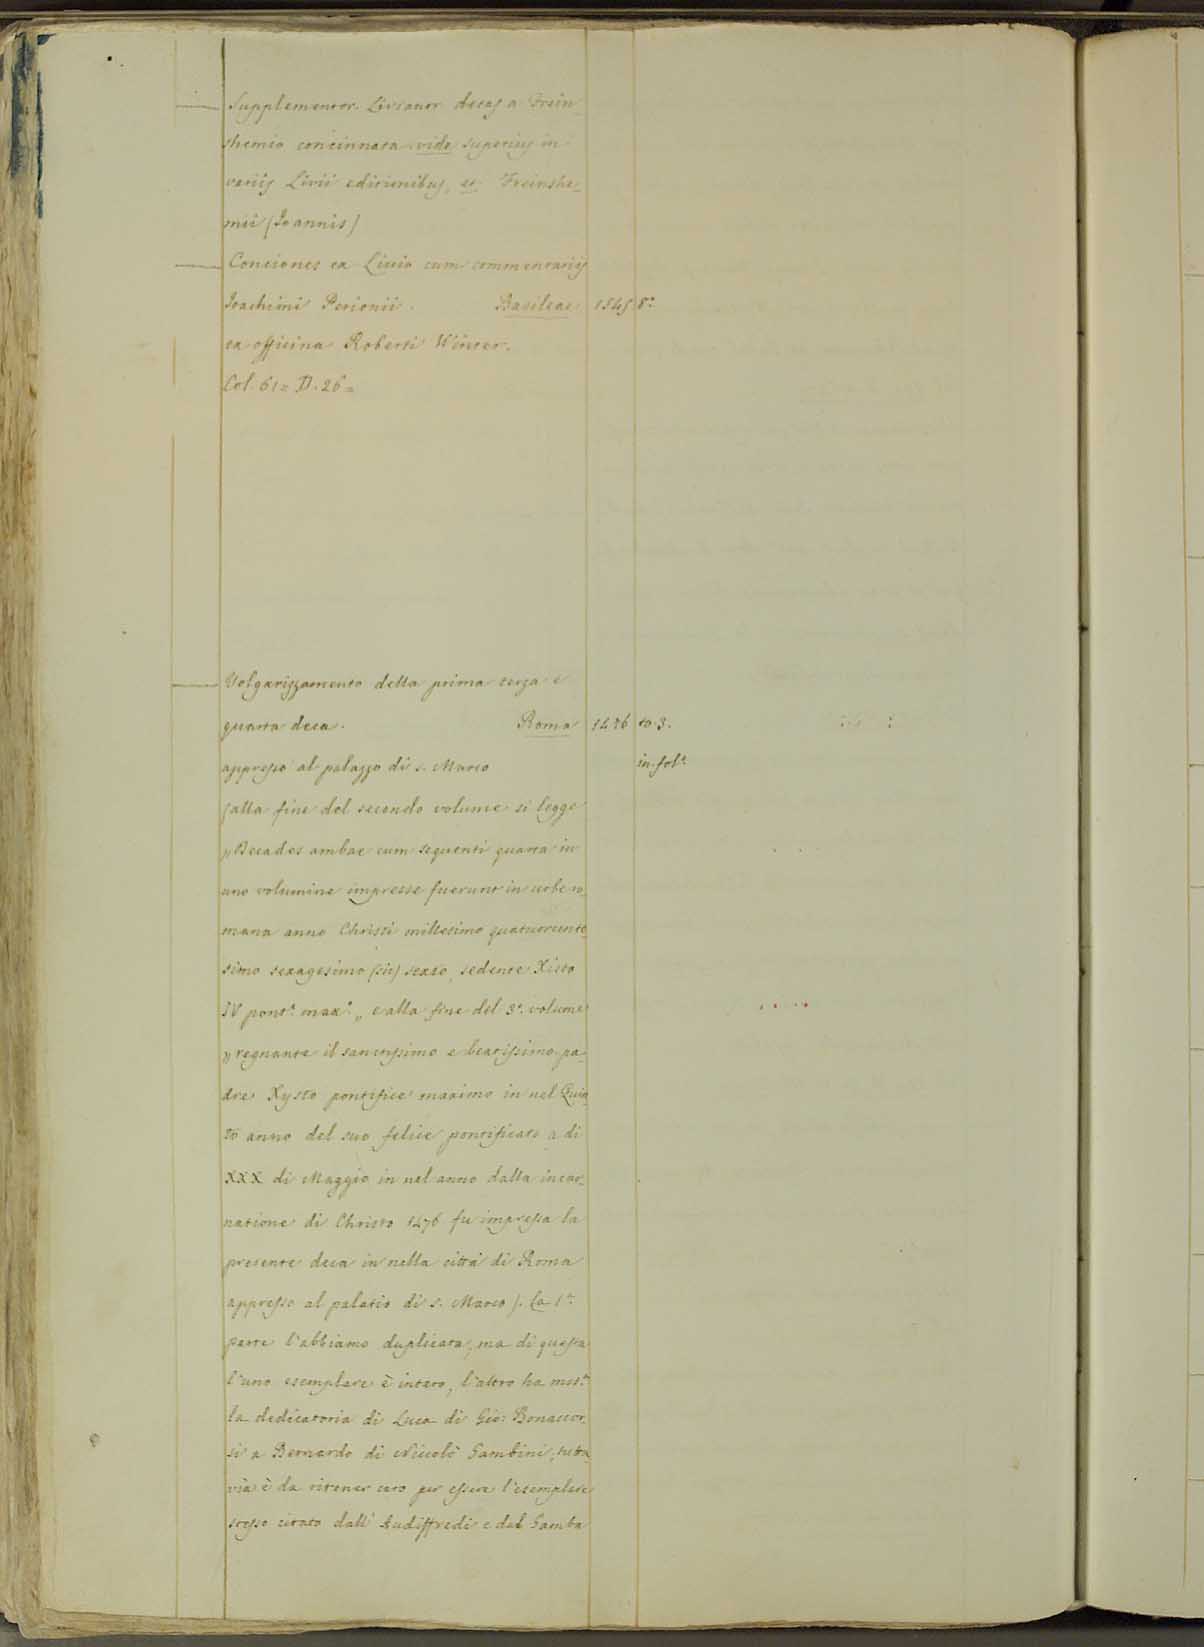 Supplementor. Livianor decas a Frein-
shemio concinnata vide superius in
variis Livii editionibus, et Freinshe-
mii (Joannis)
Conciones ex Livio cum commentariis
Joachimi Perionii. Basileae 1545 8º
ex officina Roberti Winter.
Col. 61= D. 26=
Volgarizzamento della prima terza e
quarta deca. Roma 1476 to. 3.
appresso al palazzo di s. Marco in fol.º
(alla fine del secondo volume si legge
„Decades ambae cum sequenti quarta in
uno volumine impresse fuerunt in urbe ro-
mana anno Christi millesimo quatuorcente-
simo sexagesimo (sic) sexto, sedente Xisto
IV pont.º max.º„ e alla fine del 3º. volume
„regnante il sanctissimo e beatissimo pa-
dre Xysto pontifice maximo in nel Quin-
to anno del suo felice pontificato a di
XXX di Maggio in nel anno dalla incar-
natione di Christo 1476 fu impressa la
presente deca in nella città di Roma
appresso al palatio di s. Marco). La 1ª
parte l'abbiamo duplicata, ma di questa
l'uno esemplare è intero, l'altro ha
la dedicatoria di Luca di Gio: Bonaccor-
si a Bernardo di Niccolò Gambini, tutta
via è da ritener caro per essere l'esemplare
stesso citato dall' Audiffredi e dal Gamba